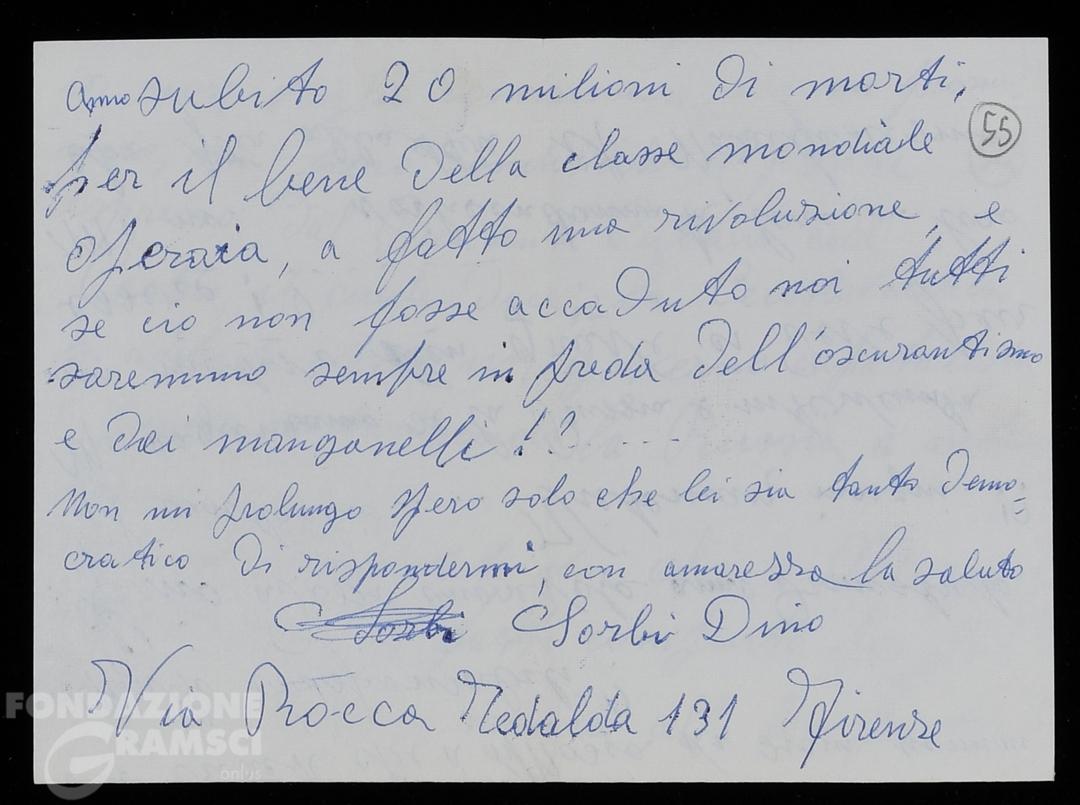 anno subito 20 milioni di morti,
55
per il bene della classe mondiale
Operaia, a fatto una rivoluzione, e
se ciò non fosse accaduto noi tutti
saremmo sempre in preda dell'oscurantismo
e dei manganelli!? ....
Non mi prolungo spero solo che lei sia tanto demo=
cratico di rispondermi, con amarezza la saluto
Sorbi Sorbi Dino
Via Rocca Tedalda 131 Firenze
FONDAZIONE
GRAMSCI
onlus